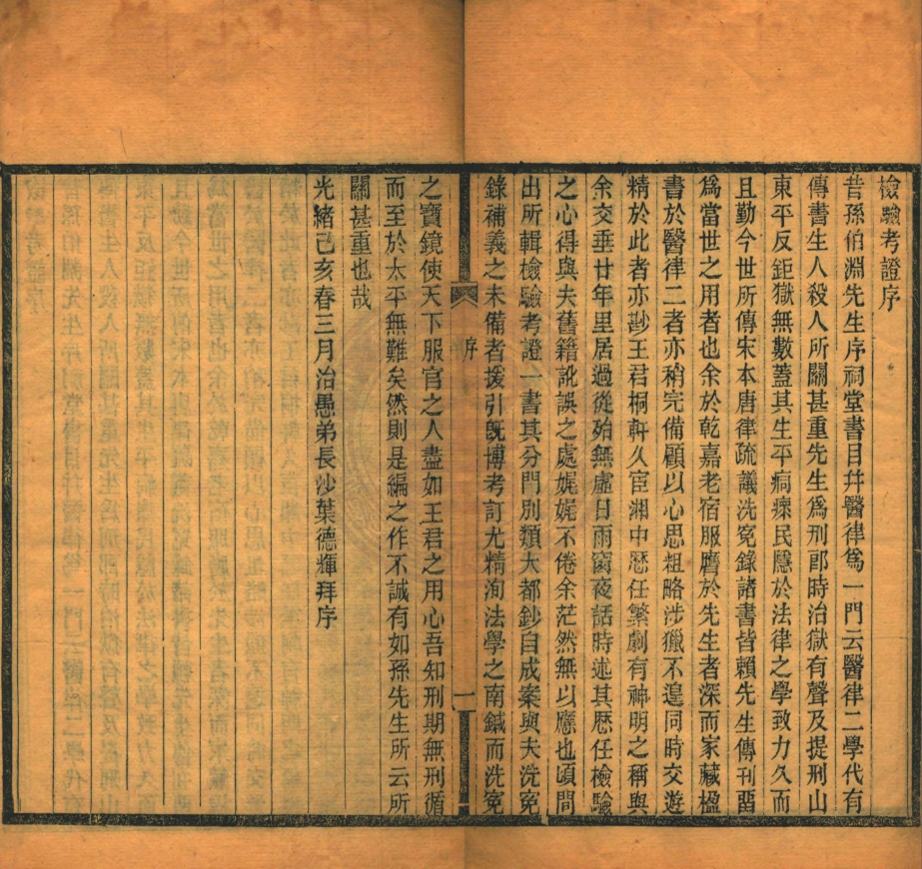 檢驗考證序
昔孫伯淵先生序祠堂書目幷醫律爲一門云醫律二學代有
傳書生人殺人所關甚重先生爲刑郎時治獄有聲及提刑山
東平反鉅獄無數蓋其生平痌瘝民隱於法律之學致力久而
且勤今世所傳宋本唐律疏議洗冤錄諸書皆賴先生傳刊留
爲當世之用者也余於乾嘉老宿服膺於先生者深而家藏楹
書於醫律二者亦稍完備顧以心思粗略涉獵不遑同時交遊
精於此者亦尟王君桐軒久宦湘中歷任繁劇有神明之稱與
余交垂廿年里居過從殆無虛日雨窗夜話時述其歷任檢驗
之心得與夫舊籍訛誤之處娓娓不倦余茫然無以應也頃間
出所輯檢驗考證一書其分門別類大都鈔自成案與夫洗冤
錄補義之未備者援引旣博考訂尤精洵法學之南鍼而洗冤
序
一
之寶鏡使天下服官之人盡如王君之用心吾知刑期無刑循
而至於太平無難矣然則是編之作不誠有如孫先生所云所
關甚重也哉
光緒己亥春三月治愚弟長沙葉德輝拜序